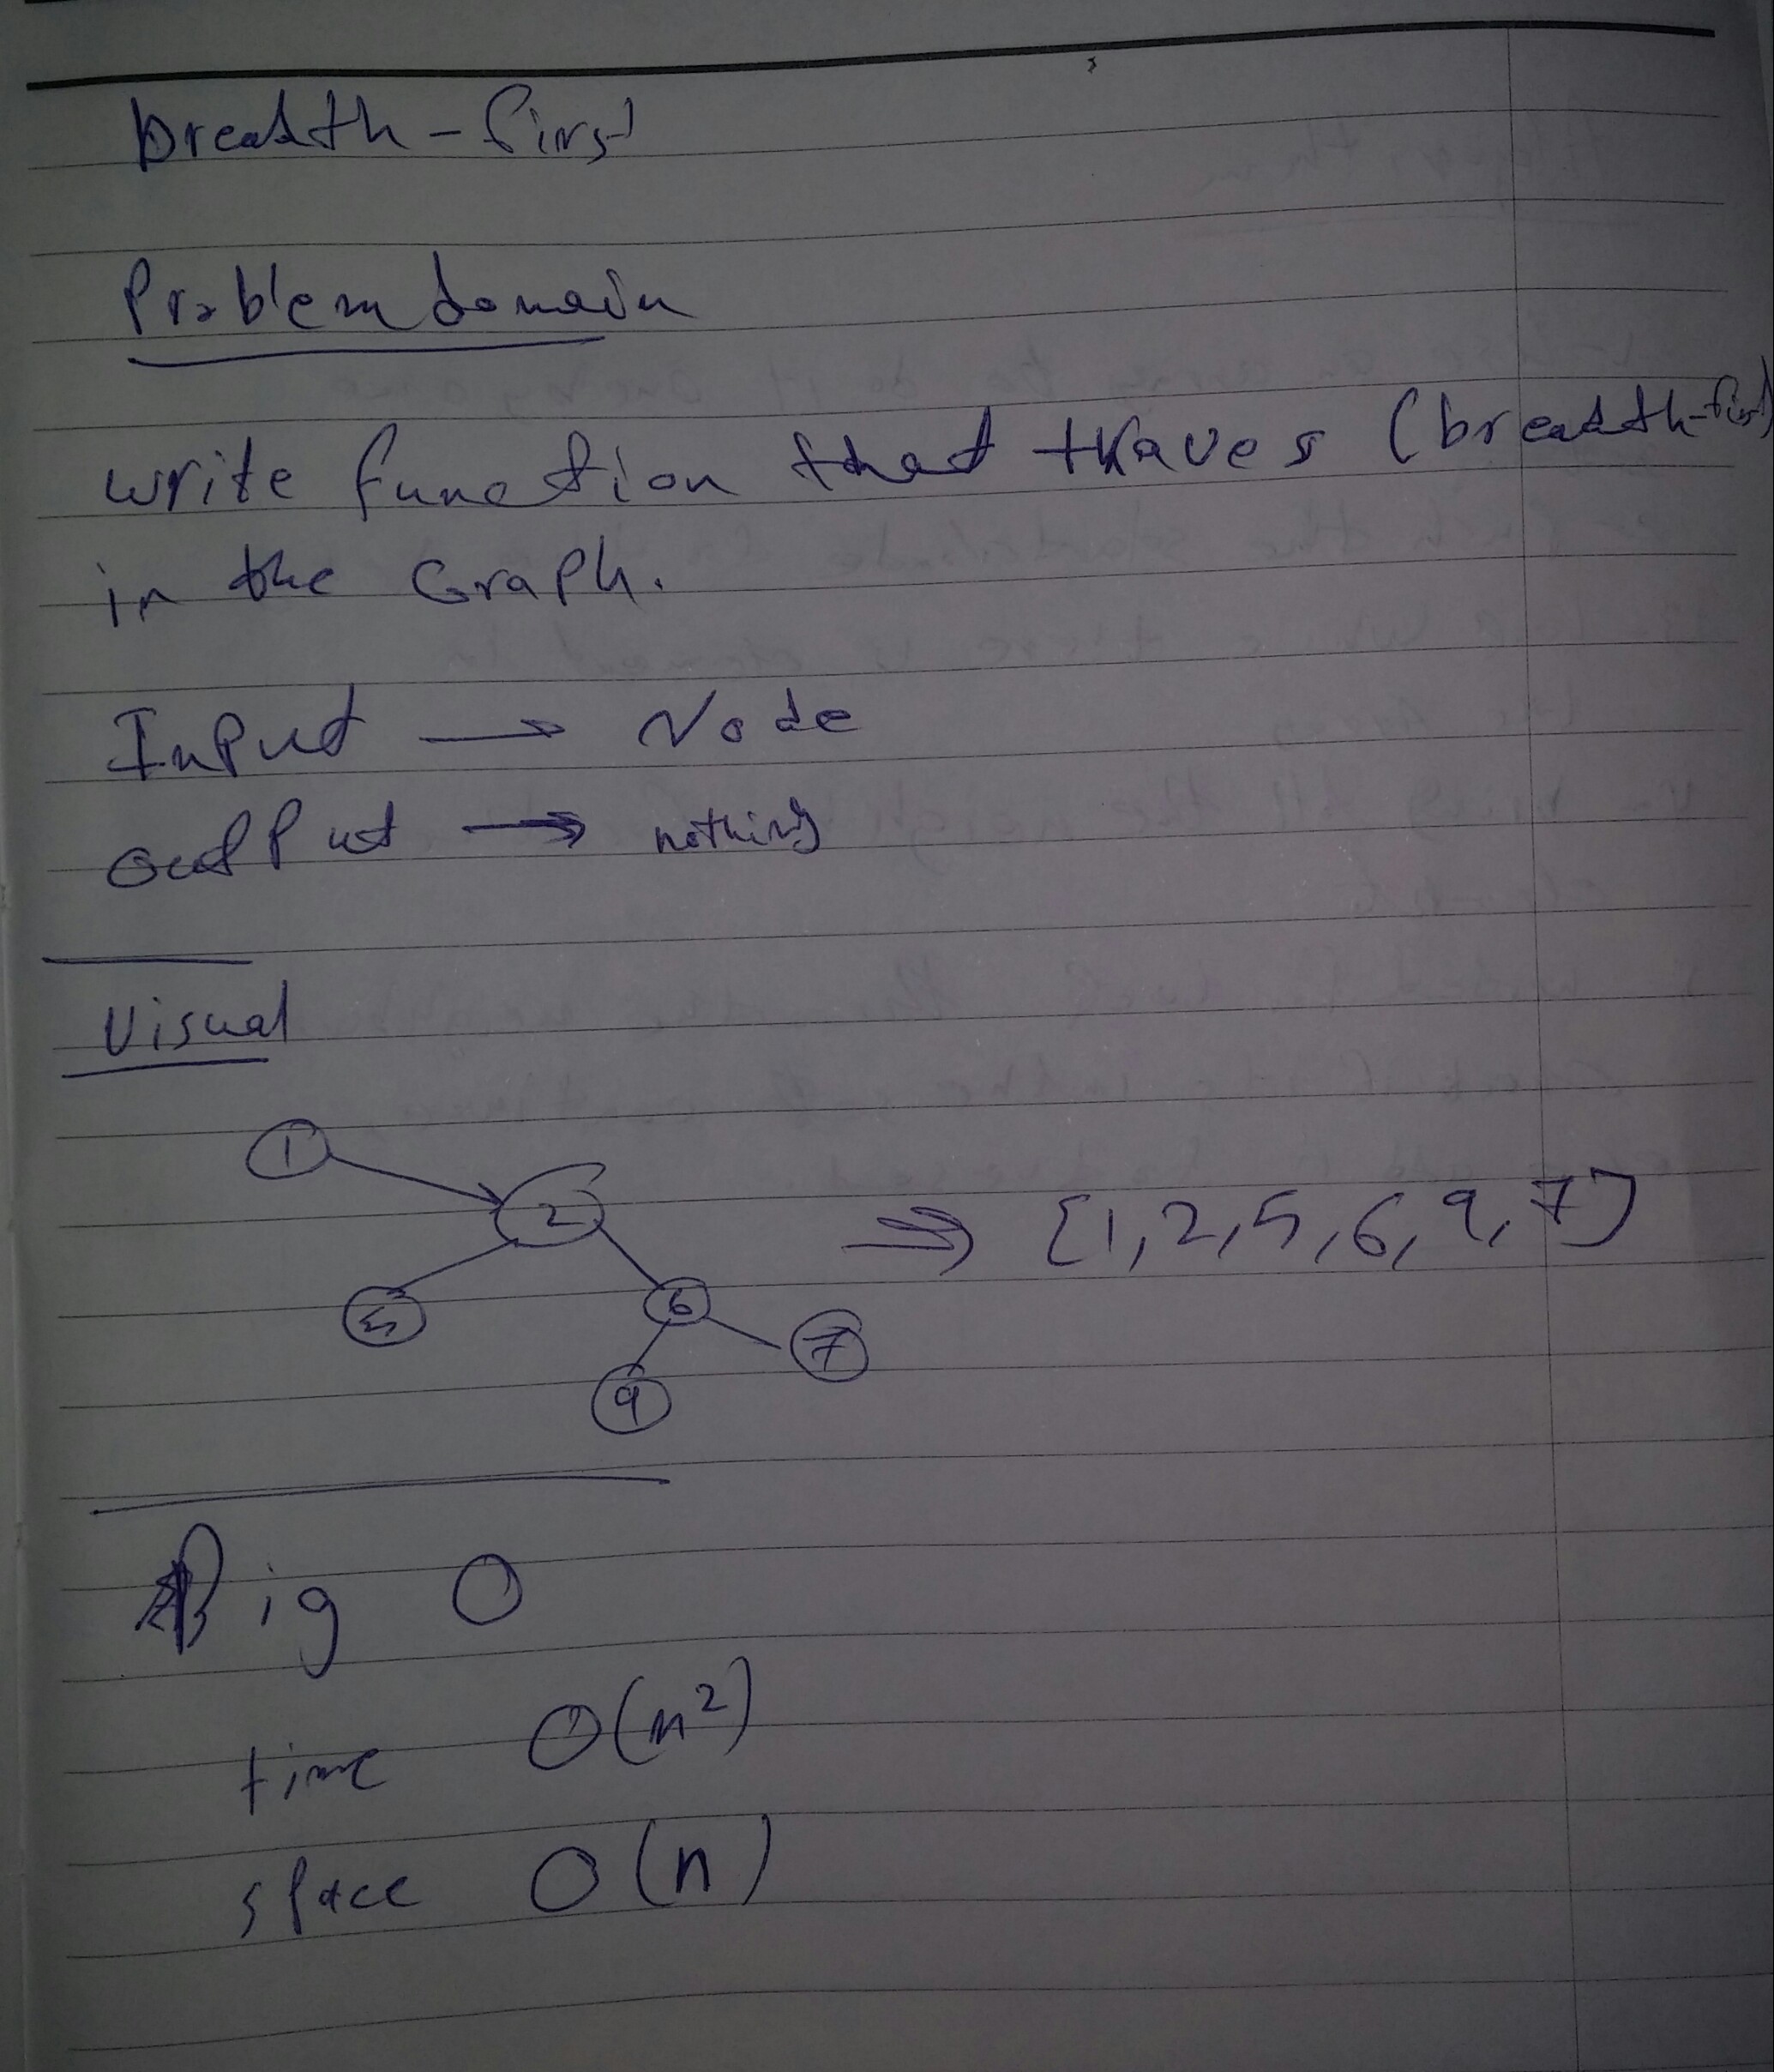 breadth-first
Problem domain
write function that traves (breadth-first)
in the Graph.
Input → Node
outPut → nothing
Visual
1
2
⇒ [1,2,5,6,9,7]
5
6
7
9
Big O
time O(n²)
space O(n)